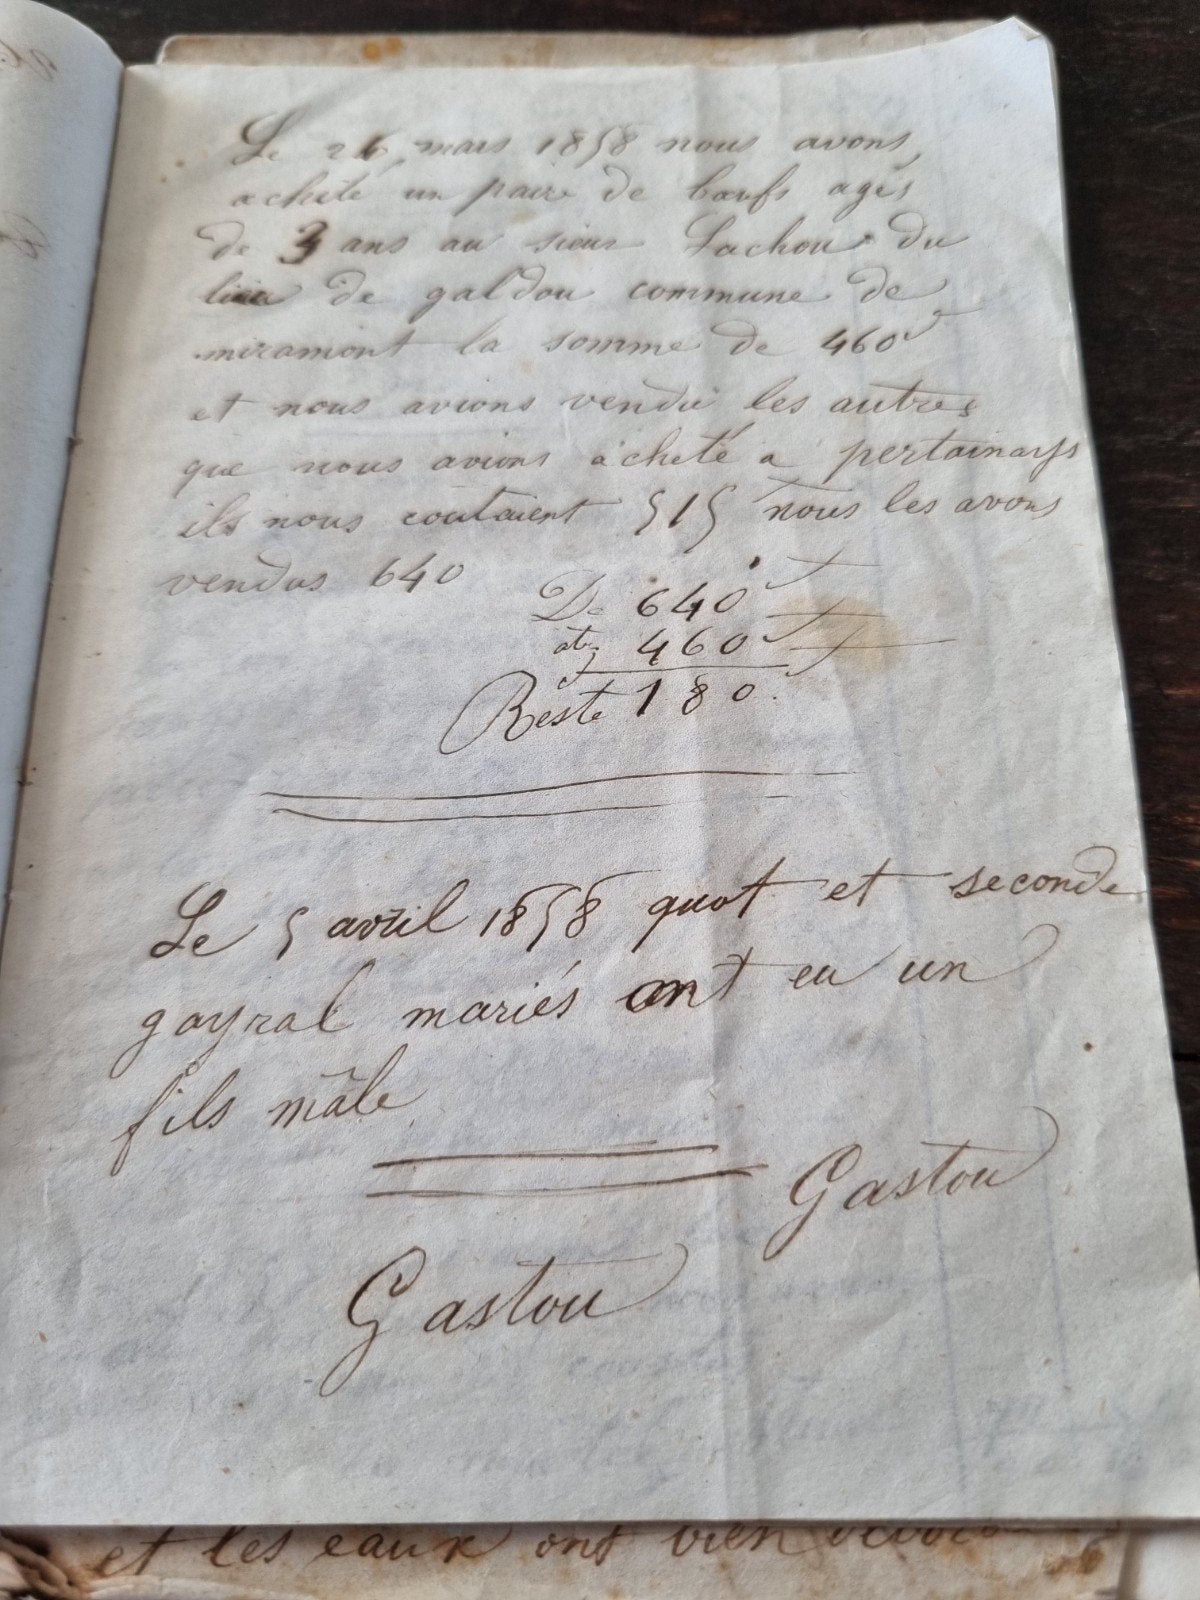 Le 26 mars 1858 nous avons
acheté un paire de bœufs agés
de 3 ans au sieur Lachou du
lieu de galdou commune de
miramont la somme de 460f
et nous avions vendu les autres
que nous avions acheté a
ils nous coutaient 515f nous les avons
vendus 640
De 640f
460f
Reste 180.
Le 5 avril 1858 quot et seconde
gayral mariés ont eu un
fils mâle
Gastou
Gastou
et les eaux ont bien